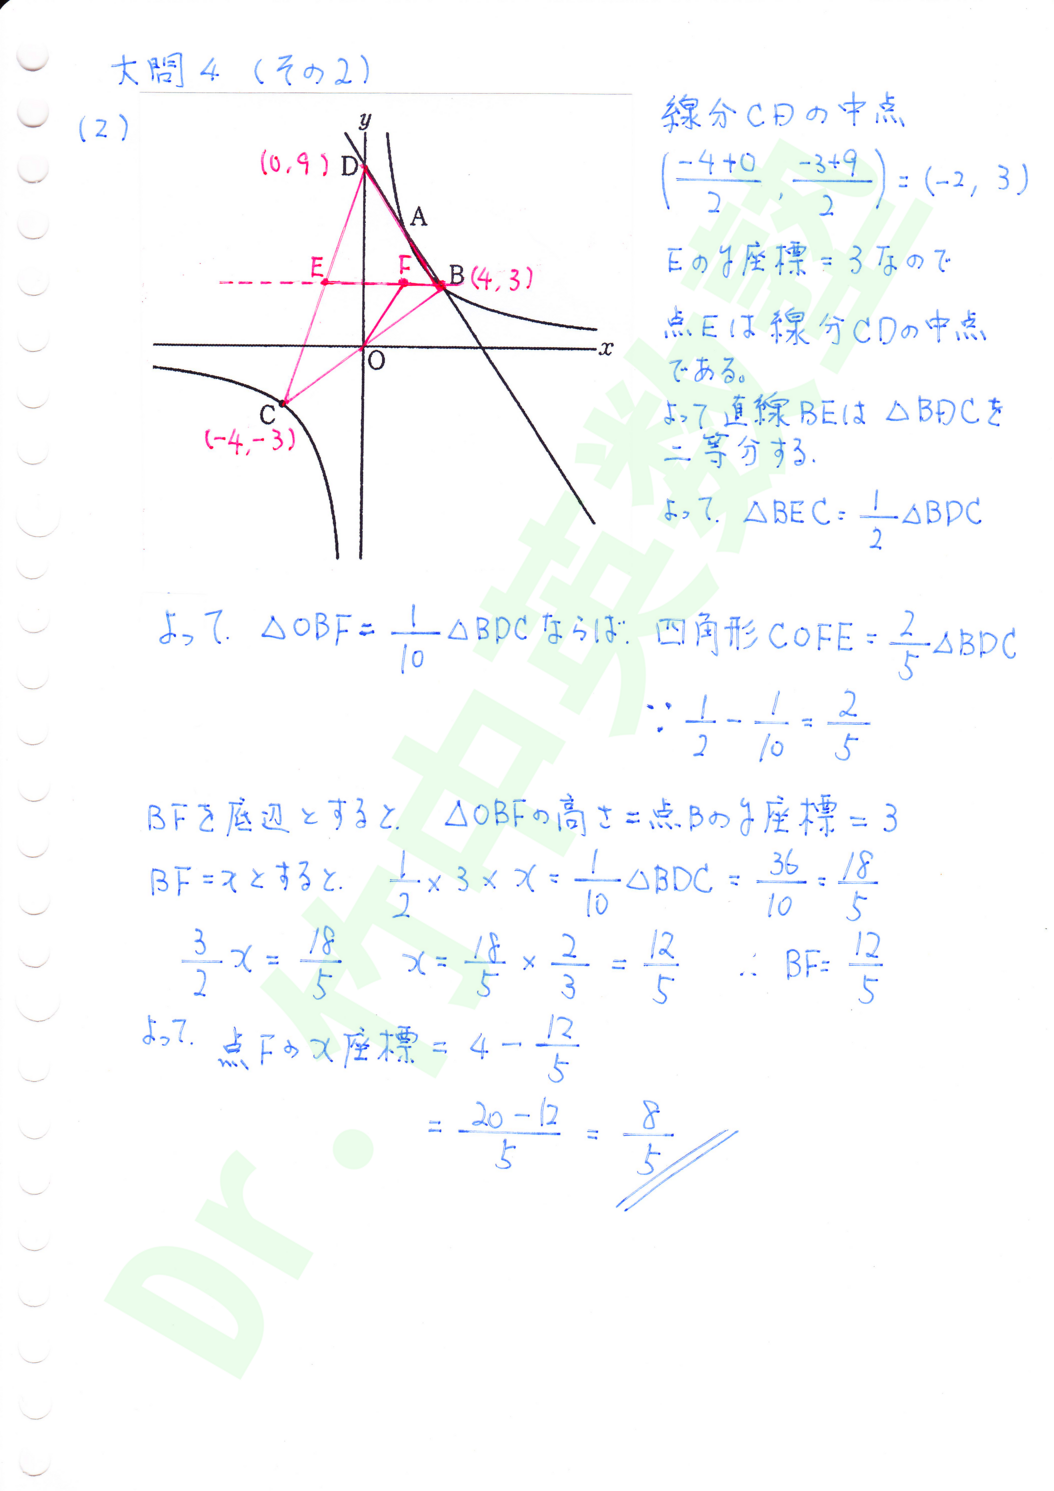 大問4 (その2)
(2)
y
(0,9) D
A
E F B (4,3)
O x
C
(-4,-3)
線分CDの中点
(\frac{-4+0}{2}, \frac{-3+9}{2}) = (-2, 3)
Eのy座標 = 3なので
点Eは線分CDの中点
である。
よって直線BEは △BDCを
二等分する.
よって. △BEC = \frac{1}{2}△BDC
よって. △OBF = \frac{1}{10}△BDCならば. 四角形COFE = \frac{2}{5}△BDC
∵ \frac{1}{2} - \frac{1}{10} = \frac{2}{5}
BFを底辺とすると. △OBFの高さ = 点Bのy座標 = 3
BF = xとすると. \frac{1}{2} × 3 × x = \frac{1}{10}△BDC = \frac{36}{10} = \frac{18}{5}
\frac{3}{2}x = \frac{18}{5} x = \frac{18}{5} × \frac{2}{3} = \frac{12}{5} ∴ BF = \frac{12}{5}
よって. 点Fのx座標 = 4 - \frac{12}{5}
= \frac{20-12}{5} = \frac{8}{5}
Dr.竹中英数塾